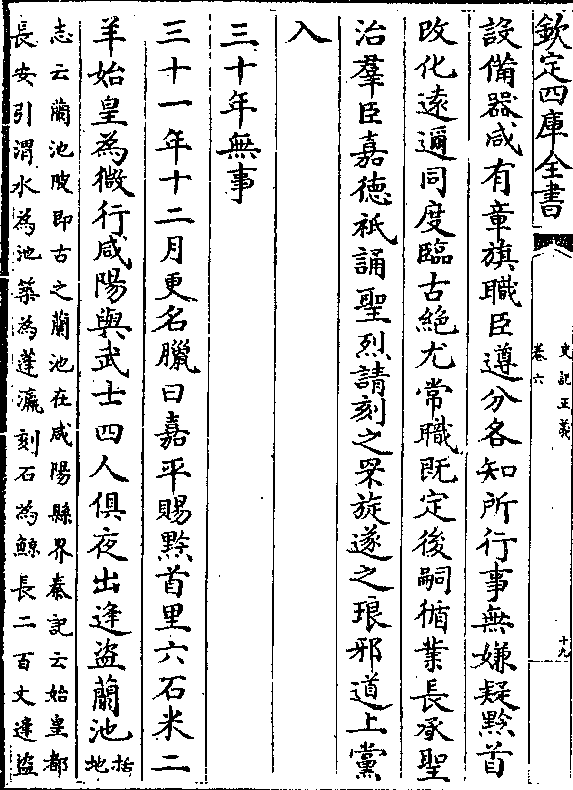 欽定四庫全書
史記正義
卷六
十九
設備器咸有章旗職臣遵分各知所行事無嫌疑黔首
改化遠邇同度臨古絶尤常職既定後嗣循業長承聖
治羣臣嘉德祇誦聖烈請刻之罘旋遂之琅邪道上黨
入
三十年無事
三十一年十二月更名臘曰嘉平賜黔首里六石米二
羊始皇為微行咸陽與武士四人俱夜出逢盜蘭池括地
志云蘭池陂即古之蘭池在咸陽縣界秦記云始皇都
長安引渭水為池築為蓬瀛刻石為鯨長二百丈逢盜